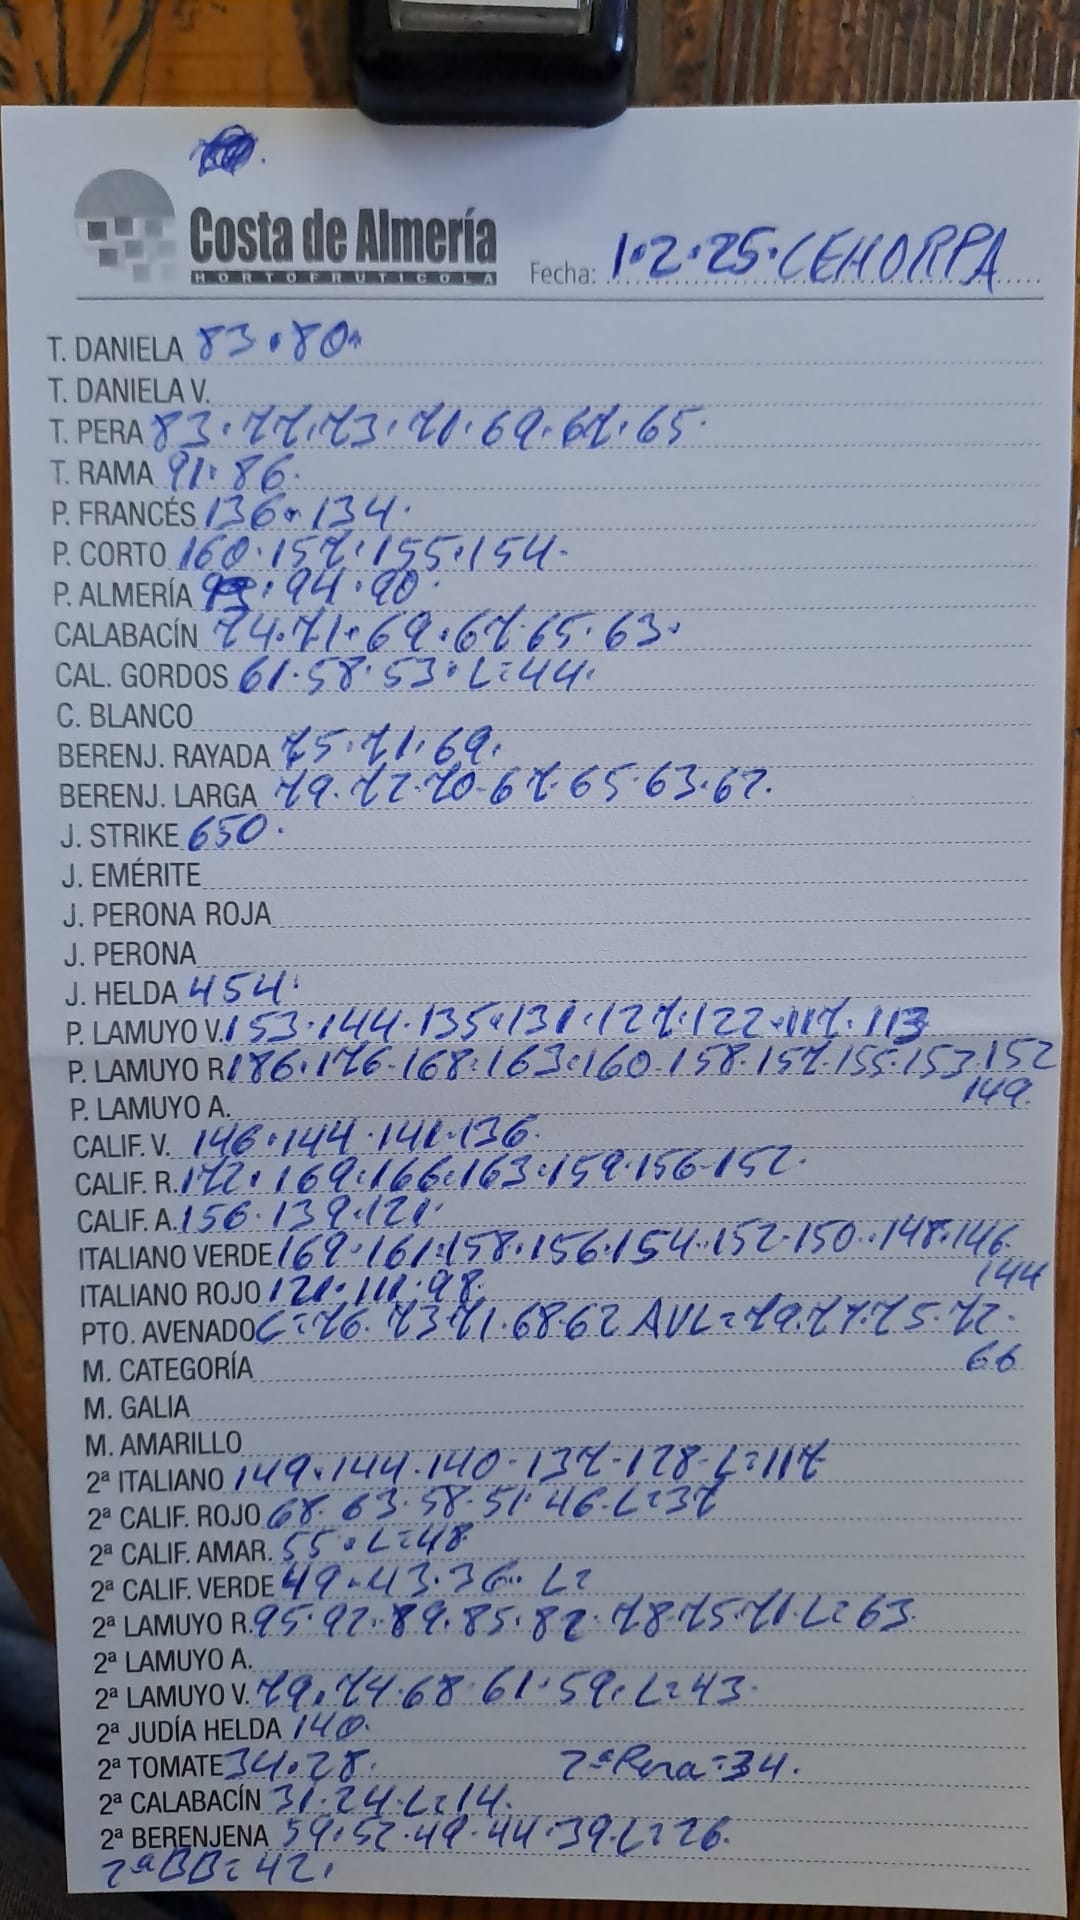 Costa de Almería
HORTOFRUTICOLA
Fecha: 1·2·25·CEHORPA
T. DANIELA 83·80·
T. DANIELA V.
T. PERA 83·77·73·71·69·67·65·
T. RAMA 91·86·
P. FRANCÉS 136·134·
P. CORTO 160·157·155·154·
P. ALMERÍA 94·90·
CALABACÍN 74·71·69·67·65·63·
CAL. GORDOS 61·58·53·L=44·
C. BLANCO
BERENJ. RAYADA 75·71·69·
BERENJ. LARGA 79·72·70·67·65·63·62·
J. STRIKE 650·
J. EMÉRITE
J. PERONA ROJA
J. PERONA
J. HELDA 454·
P. LAMUYO V. 153·144·135·131·127·122·117·113
P. LAMUYO R 186·176·168·163·160·158·157·155·153·152
149·
P. LAMUYO A.
CALIF. V. 146·144·141·136·
CALIF. R. 172·169·166·163·159·156·152·
CALIF. A. 156·139·121·
ITALIANO VERDE 169·161·158·156·154·152·150·148·146·
144
ITALIANO ROJO 121·111·98·
PTO. AVENADO C=76·73·71·68·62 AVL=79·77·75·72·
66
M. CATEGORÍA
M. GALIA
M. AMARILLO
2ª ITALIANO 149·144·140·137·128·L=117
2ª CALIF. ROJO 68·63·58·51·46·L=37
2ª CALIF. AMAR. 55·L=48
2ª CALIF. VERDE 49·43·36·L=
2ª LAMUYO R. 95·92·89·85·82·78·75·71·L=63·
2ª LAMUYO A.
2ª LAMUYO V. 79·74·68·61·59·L=43·
2ª JUDÍA HELDA 140·
2ª TOMATE 34·28· 2ª Pera=34·
2ª CALABACÍN 31·24·L=14·
2ª BERENJENA 59·52·49·44·39·L=26·
2ª BB=42·